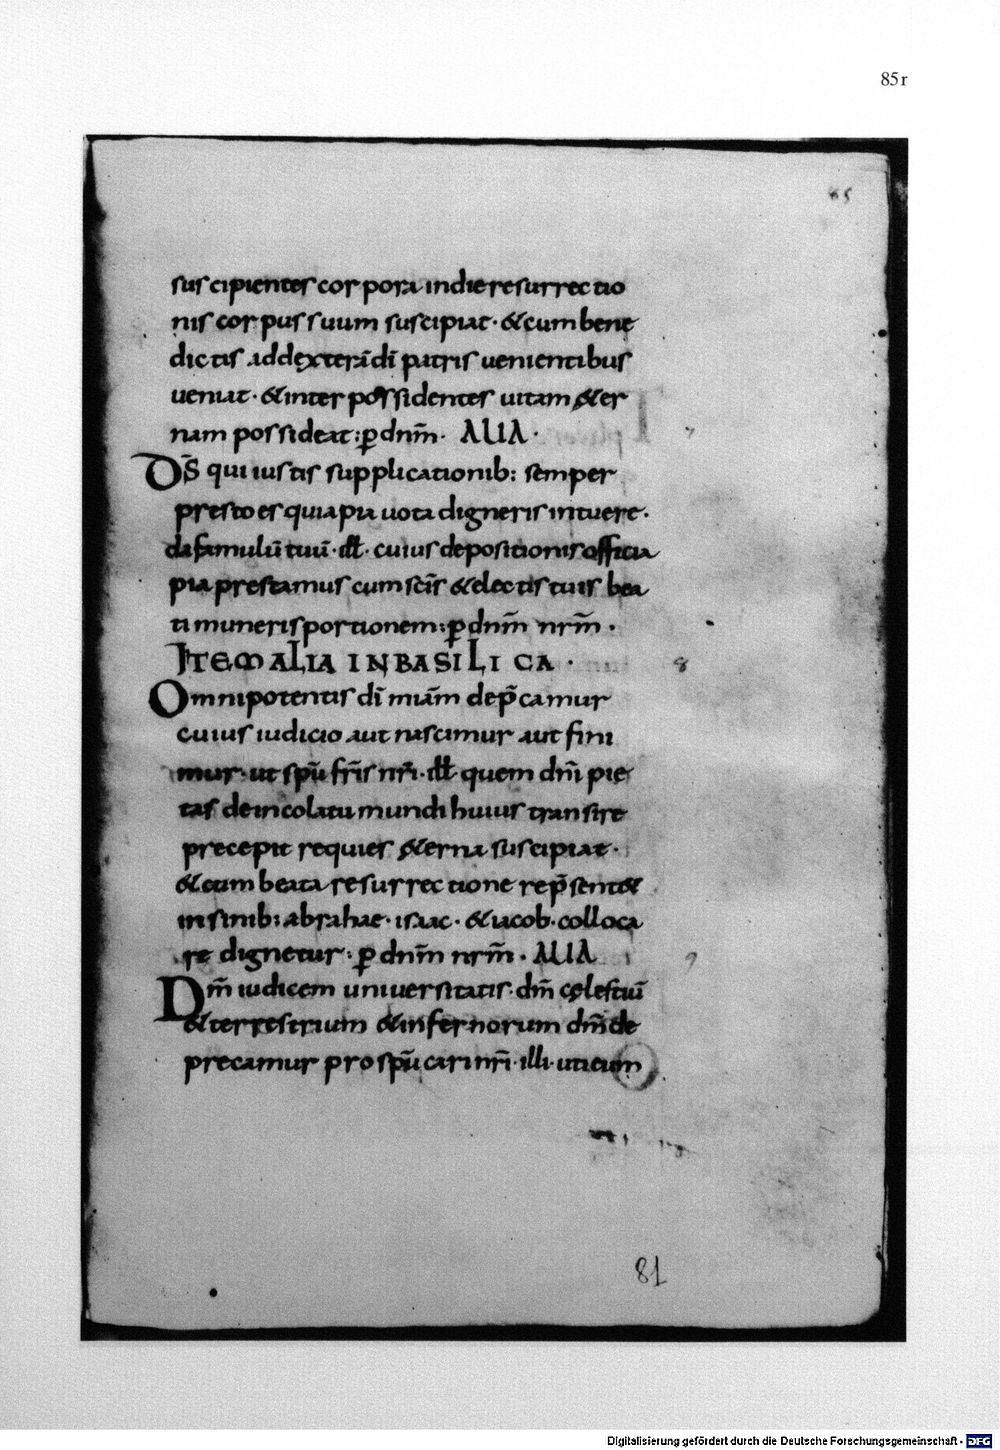 85r
85
suscipientes corpora indieresurrectio
nis corpus suum suscipiat· &cum bene
dictis addexterā dī patris uenientibus
ueniat· &inter possidentes uitam &er
nam possideat: p̲ dnm̄· ALIA·
D̄S qui iustis supplicationib: semper
presto es quia pia uota digneris intuere·
da famulū tuū· ill̄· cuius depositionis officia
pia prestamus cum scīs &electis tuis bea
ti muneris portionem: p̲ dnm̄ nrm̄·
ITEM ALIA IN BASILICA·
Omnipotentis dī miām dep̄camur
cuius iudicio aut nascimur aut fini
mur· ut spū frīs nrī· ill̄· quem dnī pie
tas de incolatu mundi huius transire
precepit requies &erna suscipiat·
&cum beata resurrectione rep̄sent&
in sinib: abrahae· isaac· &iacob· colloca
re dignetur: p̲ dnm̄ nrm̄· ALIA
Dm̄ iudicem uniuersitatis· dm̄ cęlestiū
&terrestrium &infernorum dm̄ de
precamur pro spū cari nrī· illi· uti cum
81
Digitalisierung gefördert durch die Deutsche Forschungsgemeinschaft - DFG